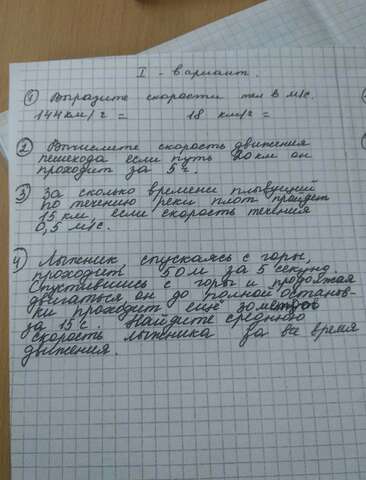 I - вариант.
① Выразите скорости тел в м/с.
144 км/г = 18 км/г =
② Вычислите скорость движения
пешехода если путь 20 км он
проходит за 5 г.
③ За сколько времени плывущий
по течению реки плот пройдет
15 км, если скорость течения
0,5 м/с.
4) Лыжник спускаясь с горы,
проходит 50 м за 5 секунд.
Спустившись с горы и продолжая
двигаться он до полной останов-
ки проходит ещё 30 метров
за 15 с. Найдите среднюю
скорость лыжника за все время
движения.